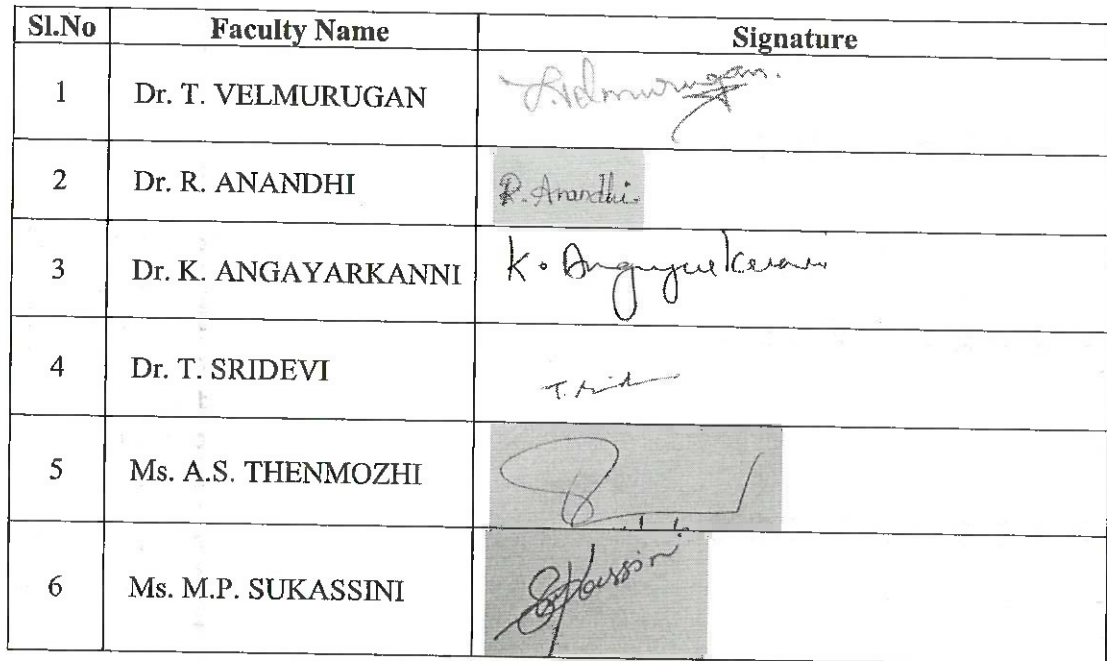 Sl.No Faculty Name Signature
1 Dr. T. VELMURUGAN T.Velmurugan.
2 Dr. R. ANANDHI R. Anandhi.
3 Dr. K. ANGAYARKANNI K. Angayarkanni
4 Dr. T. SRIDEVI
5 Ms. A.S. THENMOZHI
6 Ms. M.P. SUKASSINI